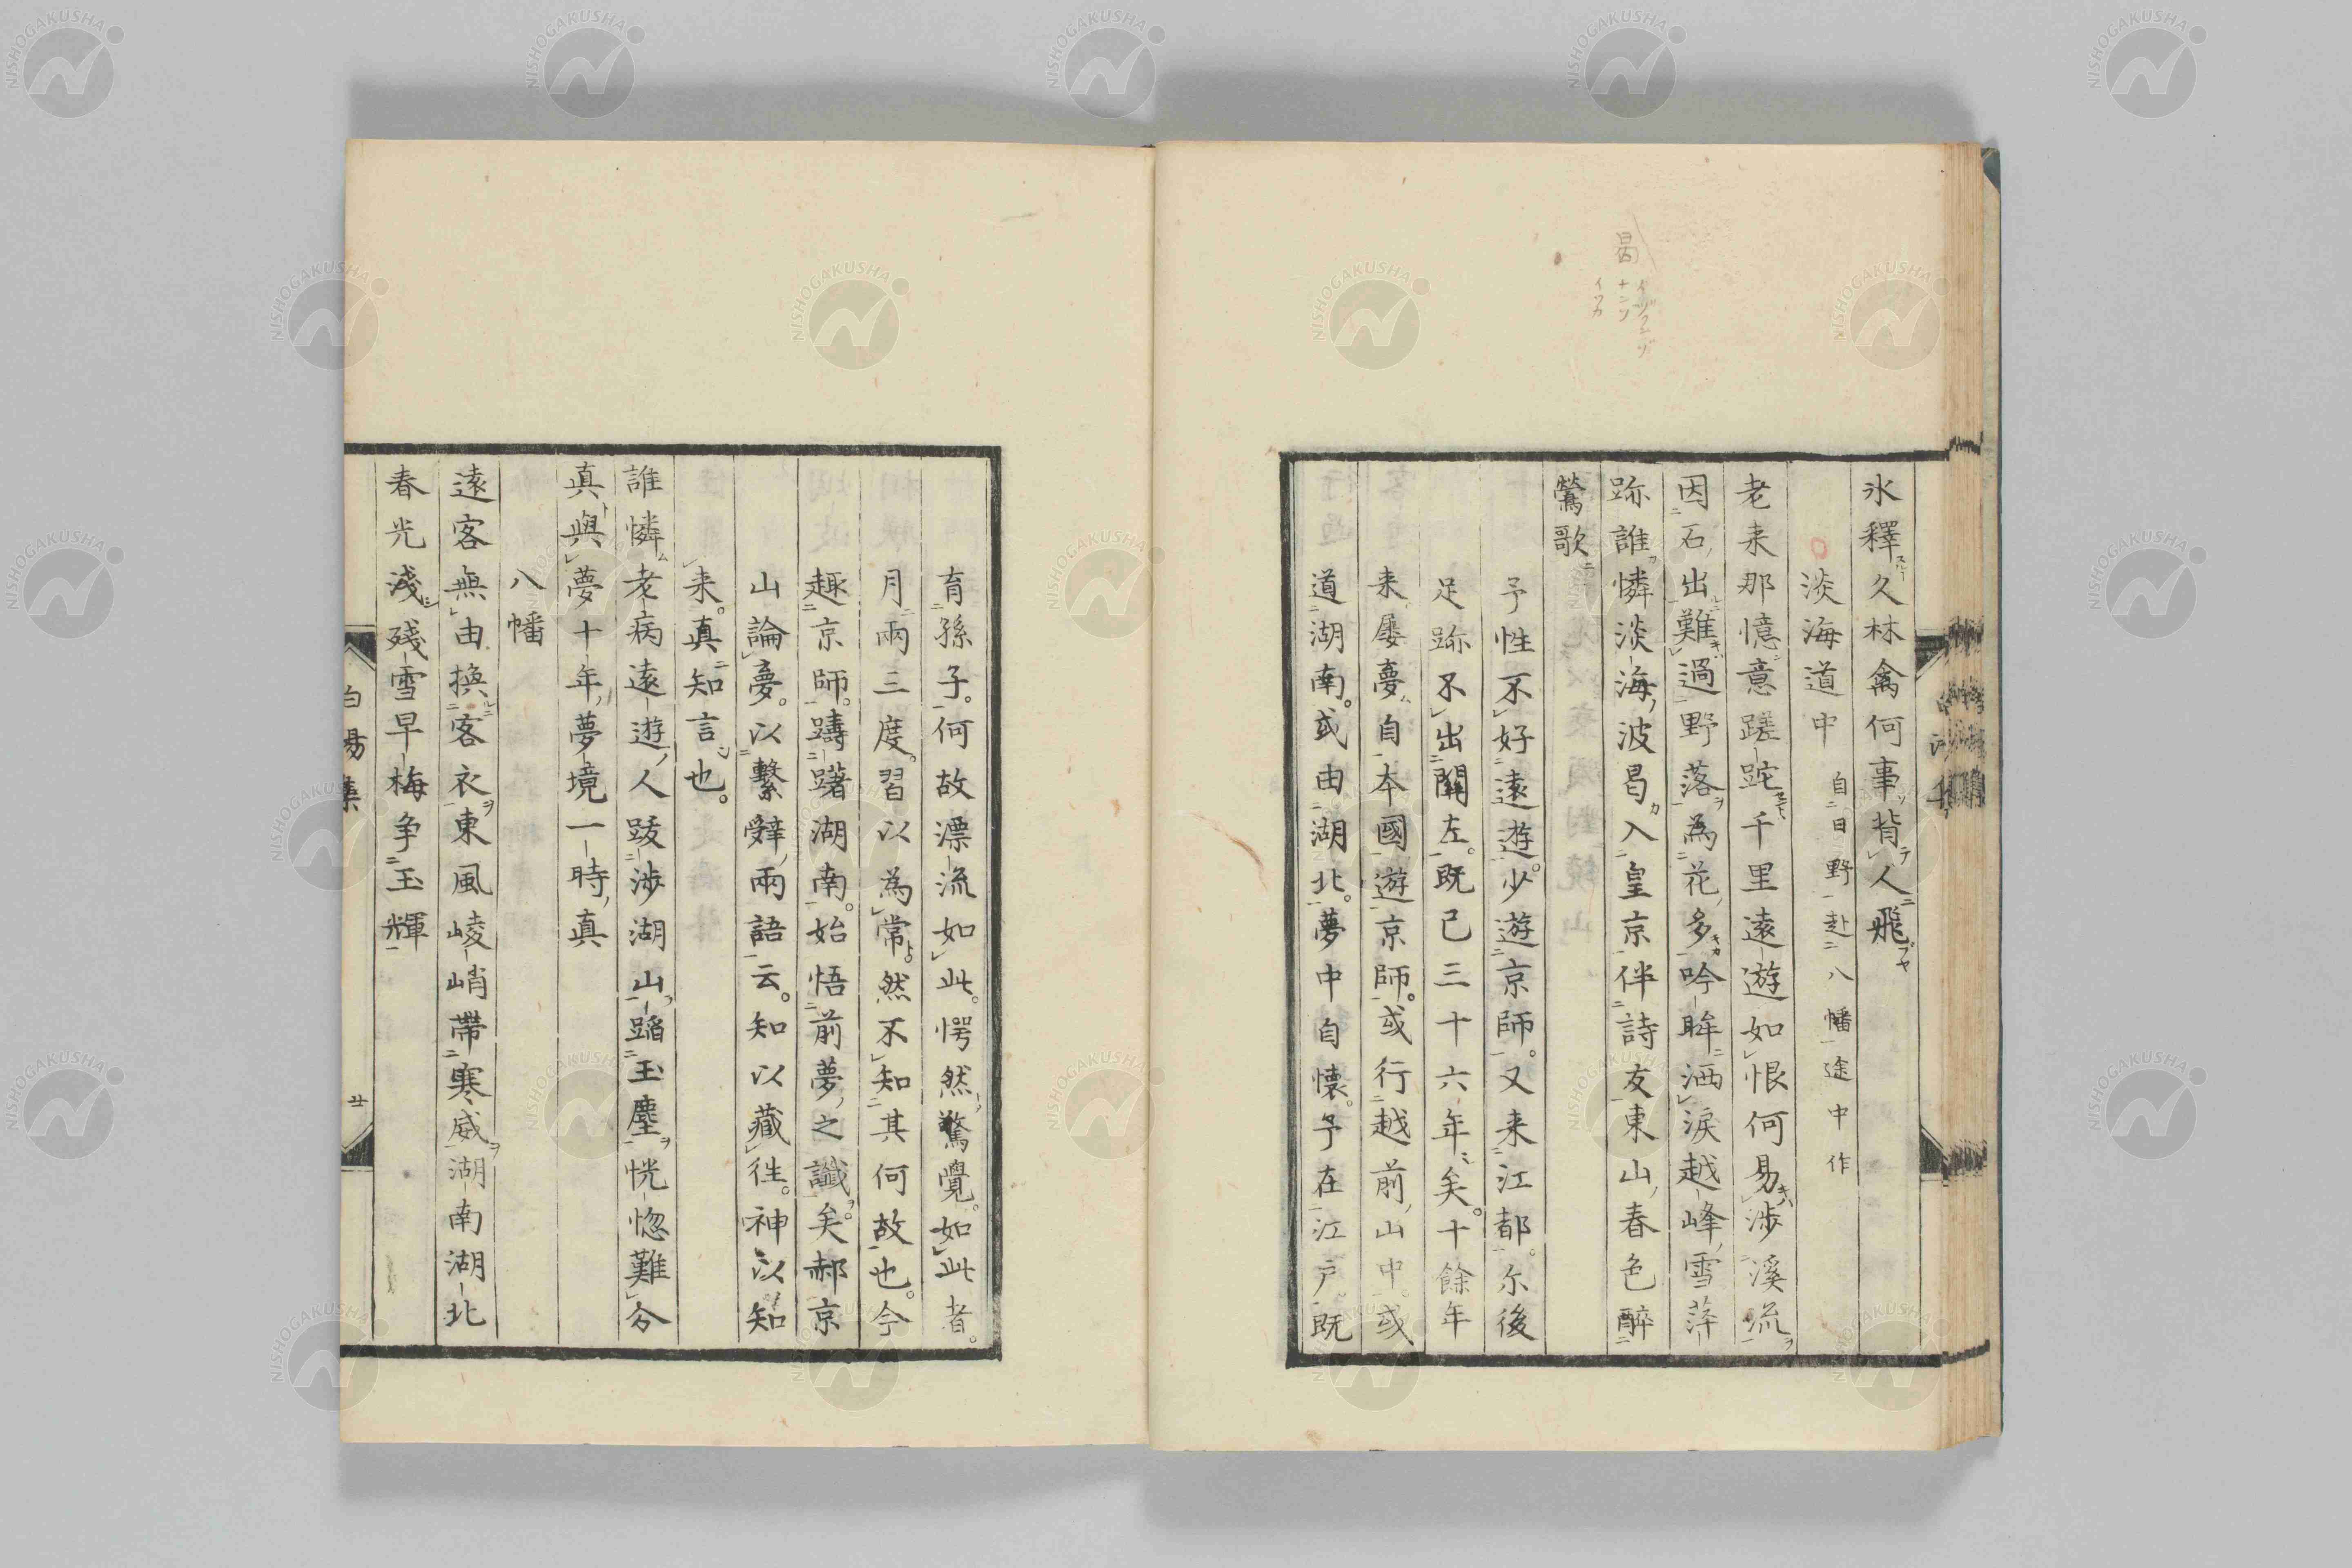 氷釋久林禽何事背人飛
淡海道中 自日野赴八幡途中作
老来那憶意蹉跎千里遠遊如恨何易渉溪流
因石出難過野落為花多吟眸洒涙越峰雪萍
跡誰憐淡海波曷入皇京伴詩友東山春色醉
鶯歌
予性不好遠遊。少遊京師。又来江都。尔後
足跡不出關左。既已三十六年矣。十餘年
来屡夢自本國遊京師。或行越前山中。或
道湖南。或由湖北。夢中自懐。予在江戸。既
曷
イヅクニゾ
ナニゾ
イツカ
育孫子。何故漂流如此。愕然驚覺。如此者。
月兩三度。習以為常。然不知其何故也。今
趣京師。躊躇湖南。始悟前夢之讖矣。郝京
山論夢。以繋辭兩語云。知以藏往。神以知
来。真知言也。
誰憐老病遠遊人跋渉湖山蹈玉塵恍惚難分
真與夢十年夢境一時真
八幡
遠客無由換客衣東風崚峭帶寒威湖南湖北
春光淺殘雪早梅争玉輝
白昜集
廿
NISHOGAKUSHA